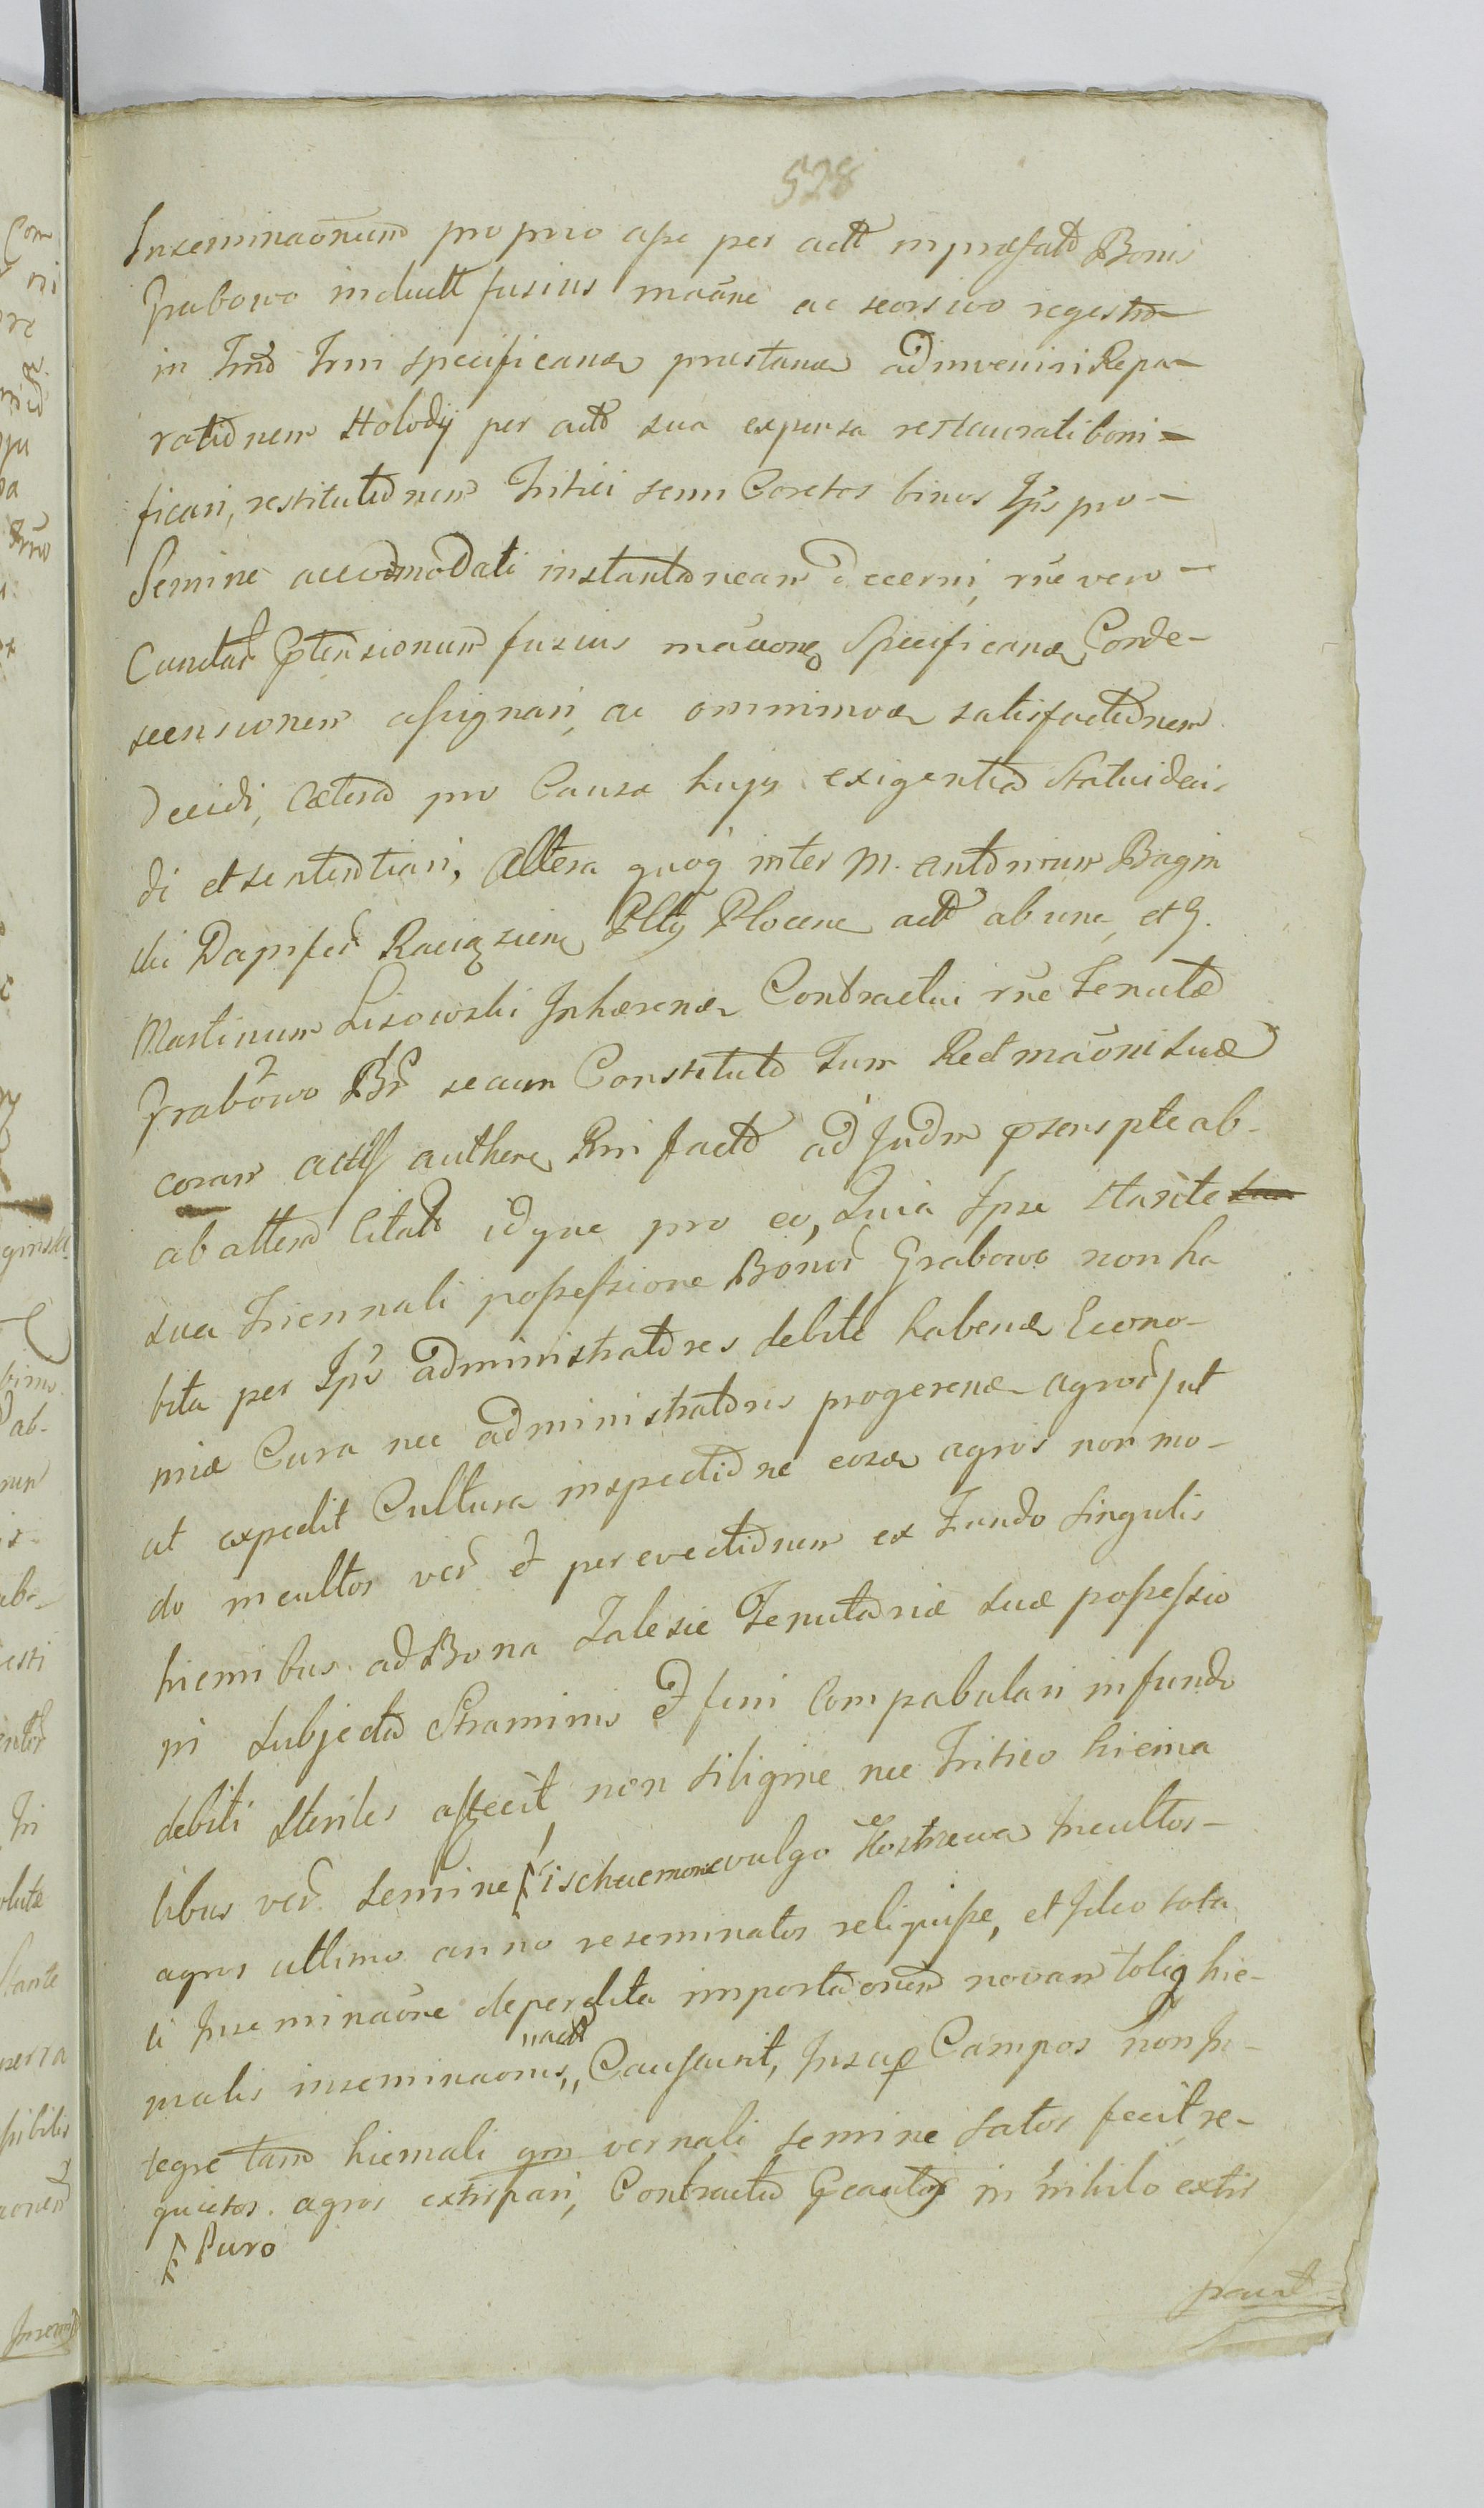 528
Inseminaōnum proprio asse per actt in præfatt Bonis
Grabowo inductt fusius maōne ac seorsivo regestro
in Tnō Trni specificanæ præstanæ adinveniri Repa-
rationem Hołodÿ per actt sua expensa restaurati boni-
ficari, restitutionem Tritici semi Coretos binos Ipīs pro
Semine accōmodati instantaneam decerni, rñe vero
Cunctar ptensionum fusius maōone specificanæ Conde-
scensionem assignari, ac omnimoda satisfactionem
decidi, Cætera pro Causæ hujꝯ exigentia Statui deci-
di et sententiari, Altera quoqꝫ inter M. Antonium Bagin
ski Dapifer Raciązien Pltꝫ Plocene actt ab una, et G.
Martinum Lisowski Inhærenæ Contractui rñe Tenutæ
Grabowo Br secum Constituto Tum Reclmaōni suæ
coram actis authene Rni facto ad Judm psens pte ab
ab altera Citatt idque pro eo, Quia Ipse stante
sua Triennali possessione Bonor Grabowo non ha
bita per Ipīs administratores debite habenæ Econo-
miæ Cura nec administratoris progerenæ agror, ut
at expedit Cultura inspectione eosæ agros non mo-
do incultos ver et per evectionem ex Fundo singulis
hiemibus ad Bona Zalesie Tenutariæ suæ possessio
ni subjecta Straminis et feni compabulari in fundo
debiti steriles affecit, non siligine nec Tritico hiema
libus ver Semine ischaemone vulgo Kostrzewa Incultos
agros ultimo anno reseminatos reliquisse, et Ideo tota
li Inseminaōne deperdita importaonem novam toliꝫ hie-
"actt
malis inseminaonis,, Causavit, Insup Campos non In-
tegre tam hiemali qm vernali semine satos fecit, re-
quietos agros extirpari, Contractu Pcautos in nihilo extir
Puro
pavit